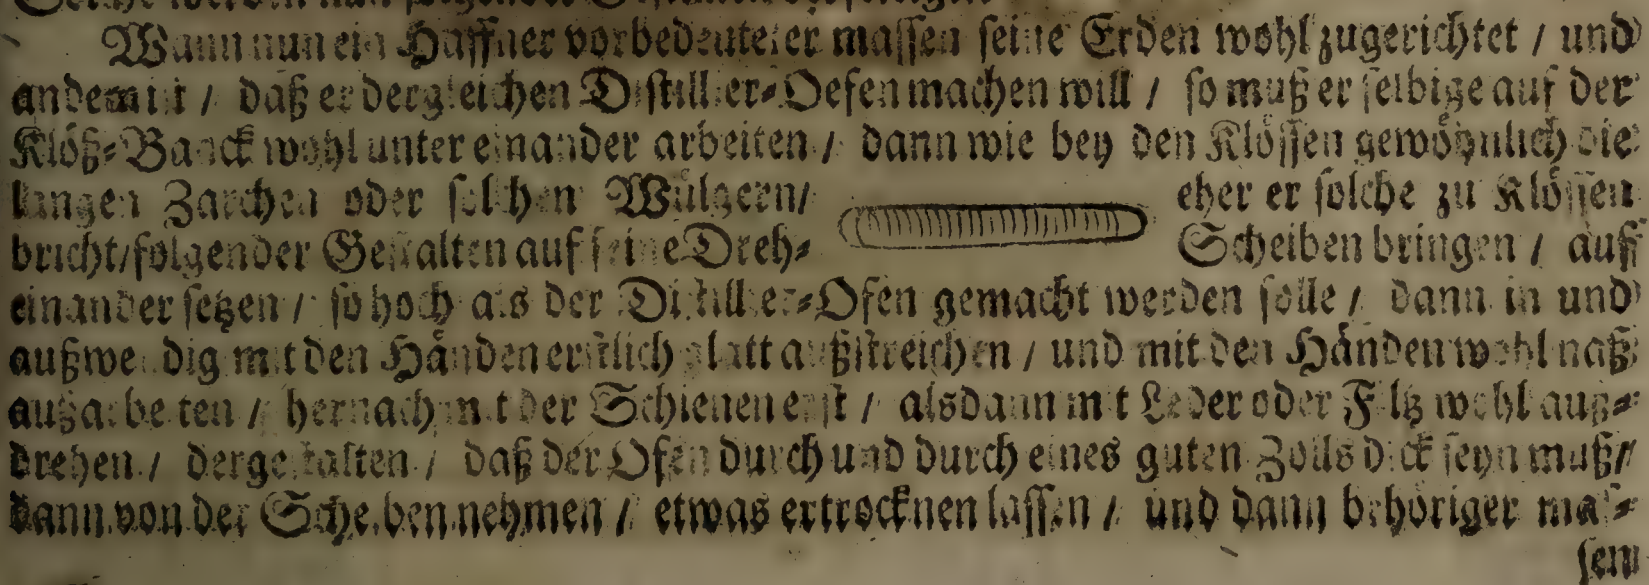 Wann nun ein Haffner vorbedeuteter massen seine Erden wohl zugerichtet / und
andemist / daß er dergleichen Distillier-Oefen machen will / so muß er selbige auf der
Klöß-Banck wohl unter einander arbeiten / dann wie bey den Klössen gewöhnlich die
langen Zarchen oder solchen Wülgern / eher er solche zu Klössen
bricht / folgender Gestalten auf seine Dreh- Scheiben bringen / auff
einander setzen / so hoch als der Distillier-Ofen gemacht werden solle / dann in und
außwendig mit den Händen erstlich glatt außstreichen / und mit den Händen wohl naß
außarbeiten / hernach mit der Schienen erst / alsdann mit Leder oder Filtz wohl auß-
drehen / dergestalten / daß der Ofen durch und durch eines guten Zolls dick seyn muß /
dann von der Scheiben nehmen / etwas ertrocknen lassen / und dann behöriger mas-
sen